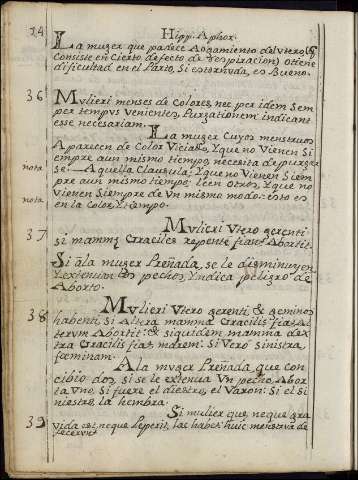 24 Hipp: Aphor.
La muger que padece Aogamiento del Utero (q
Consiste eñ Cierto defecto de respiracion) o tiene
dificultad en el Parto, Si estornuda, es Bueno.
36 Mulieri menses de Colores, nec per idem Sem
per tempus Venientes, Purgationem indicant
esse necesariam.
La muger Cuyos menstruos
Aparecen de Color Viciado, Y que no Vienen Si
empre a un mismo tiempo, necesita de purgar
nota se. Aquella Clausula: Y que no Vienen Siem
pre a un mismo tiempo, leen otros, Y que no
nota Vienen Siempre de Un mismo modo: esto es
en la Color, Y tiempo.
37 Mulieri Utero gerenti
si mammæ Graciles repente fiant Abortit.
Si à la muger Preñada, se le disminuyen
Y extenuan los pechos, Yndica peligro de
Aborto.
38 Mulieri Utero gerenti, & geminos
habenti, Si Altera mamma Gracilis fiat, Al
terum Abortit: & siquidem mamma dex
tra Gracilis fiat, marem: Si Vero Sinistra
fœminam.
A la muger Preñada que con
cibio dos, Si se le extenua Un pecho, Abor
ta Uno, Si fuere el diestro, el Varon: Si el Si
niestro, la hembra.
39 Si mulier quæ neque gra
vida est, neque Peperit, lac habet: huic menstrua de
fecerunt